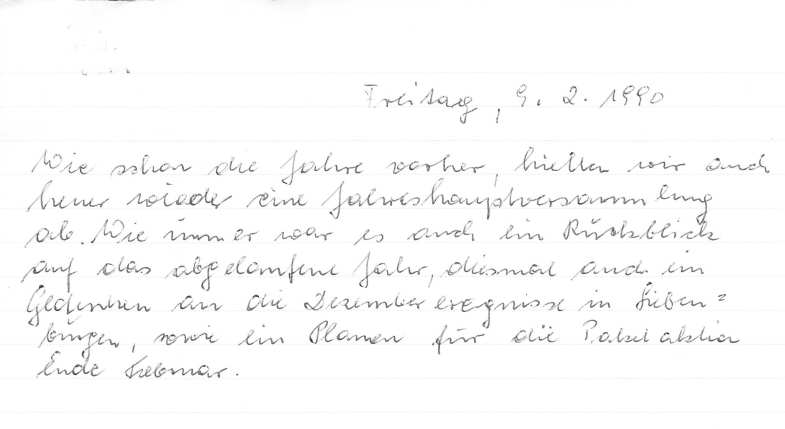 Freitag, 9. 2. 1990
Wie schon die Jahre vorher, hielten wir auch
heuer wieder eine Jahreshauptversammlung
ab. Wie immer war es auch ein Rückblick
auf das abgelaufene Jahr, diesmal auch ein
Gedenken an die Dezemberereignisse in Sieben=
bürgen, sowie ein Planen für die Paketaktion
Ende Februar.